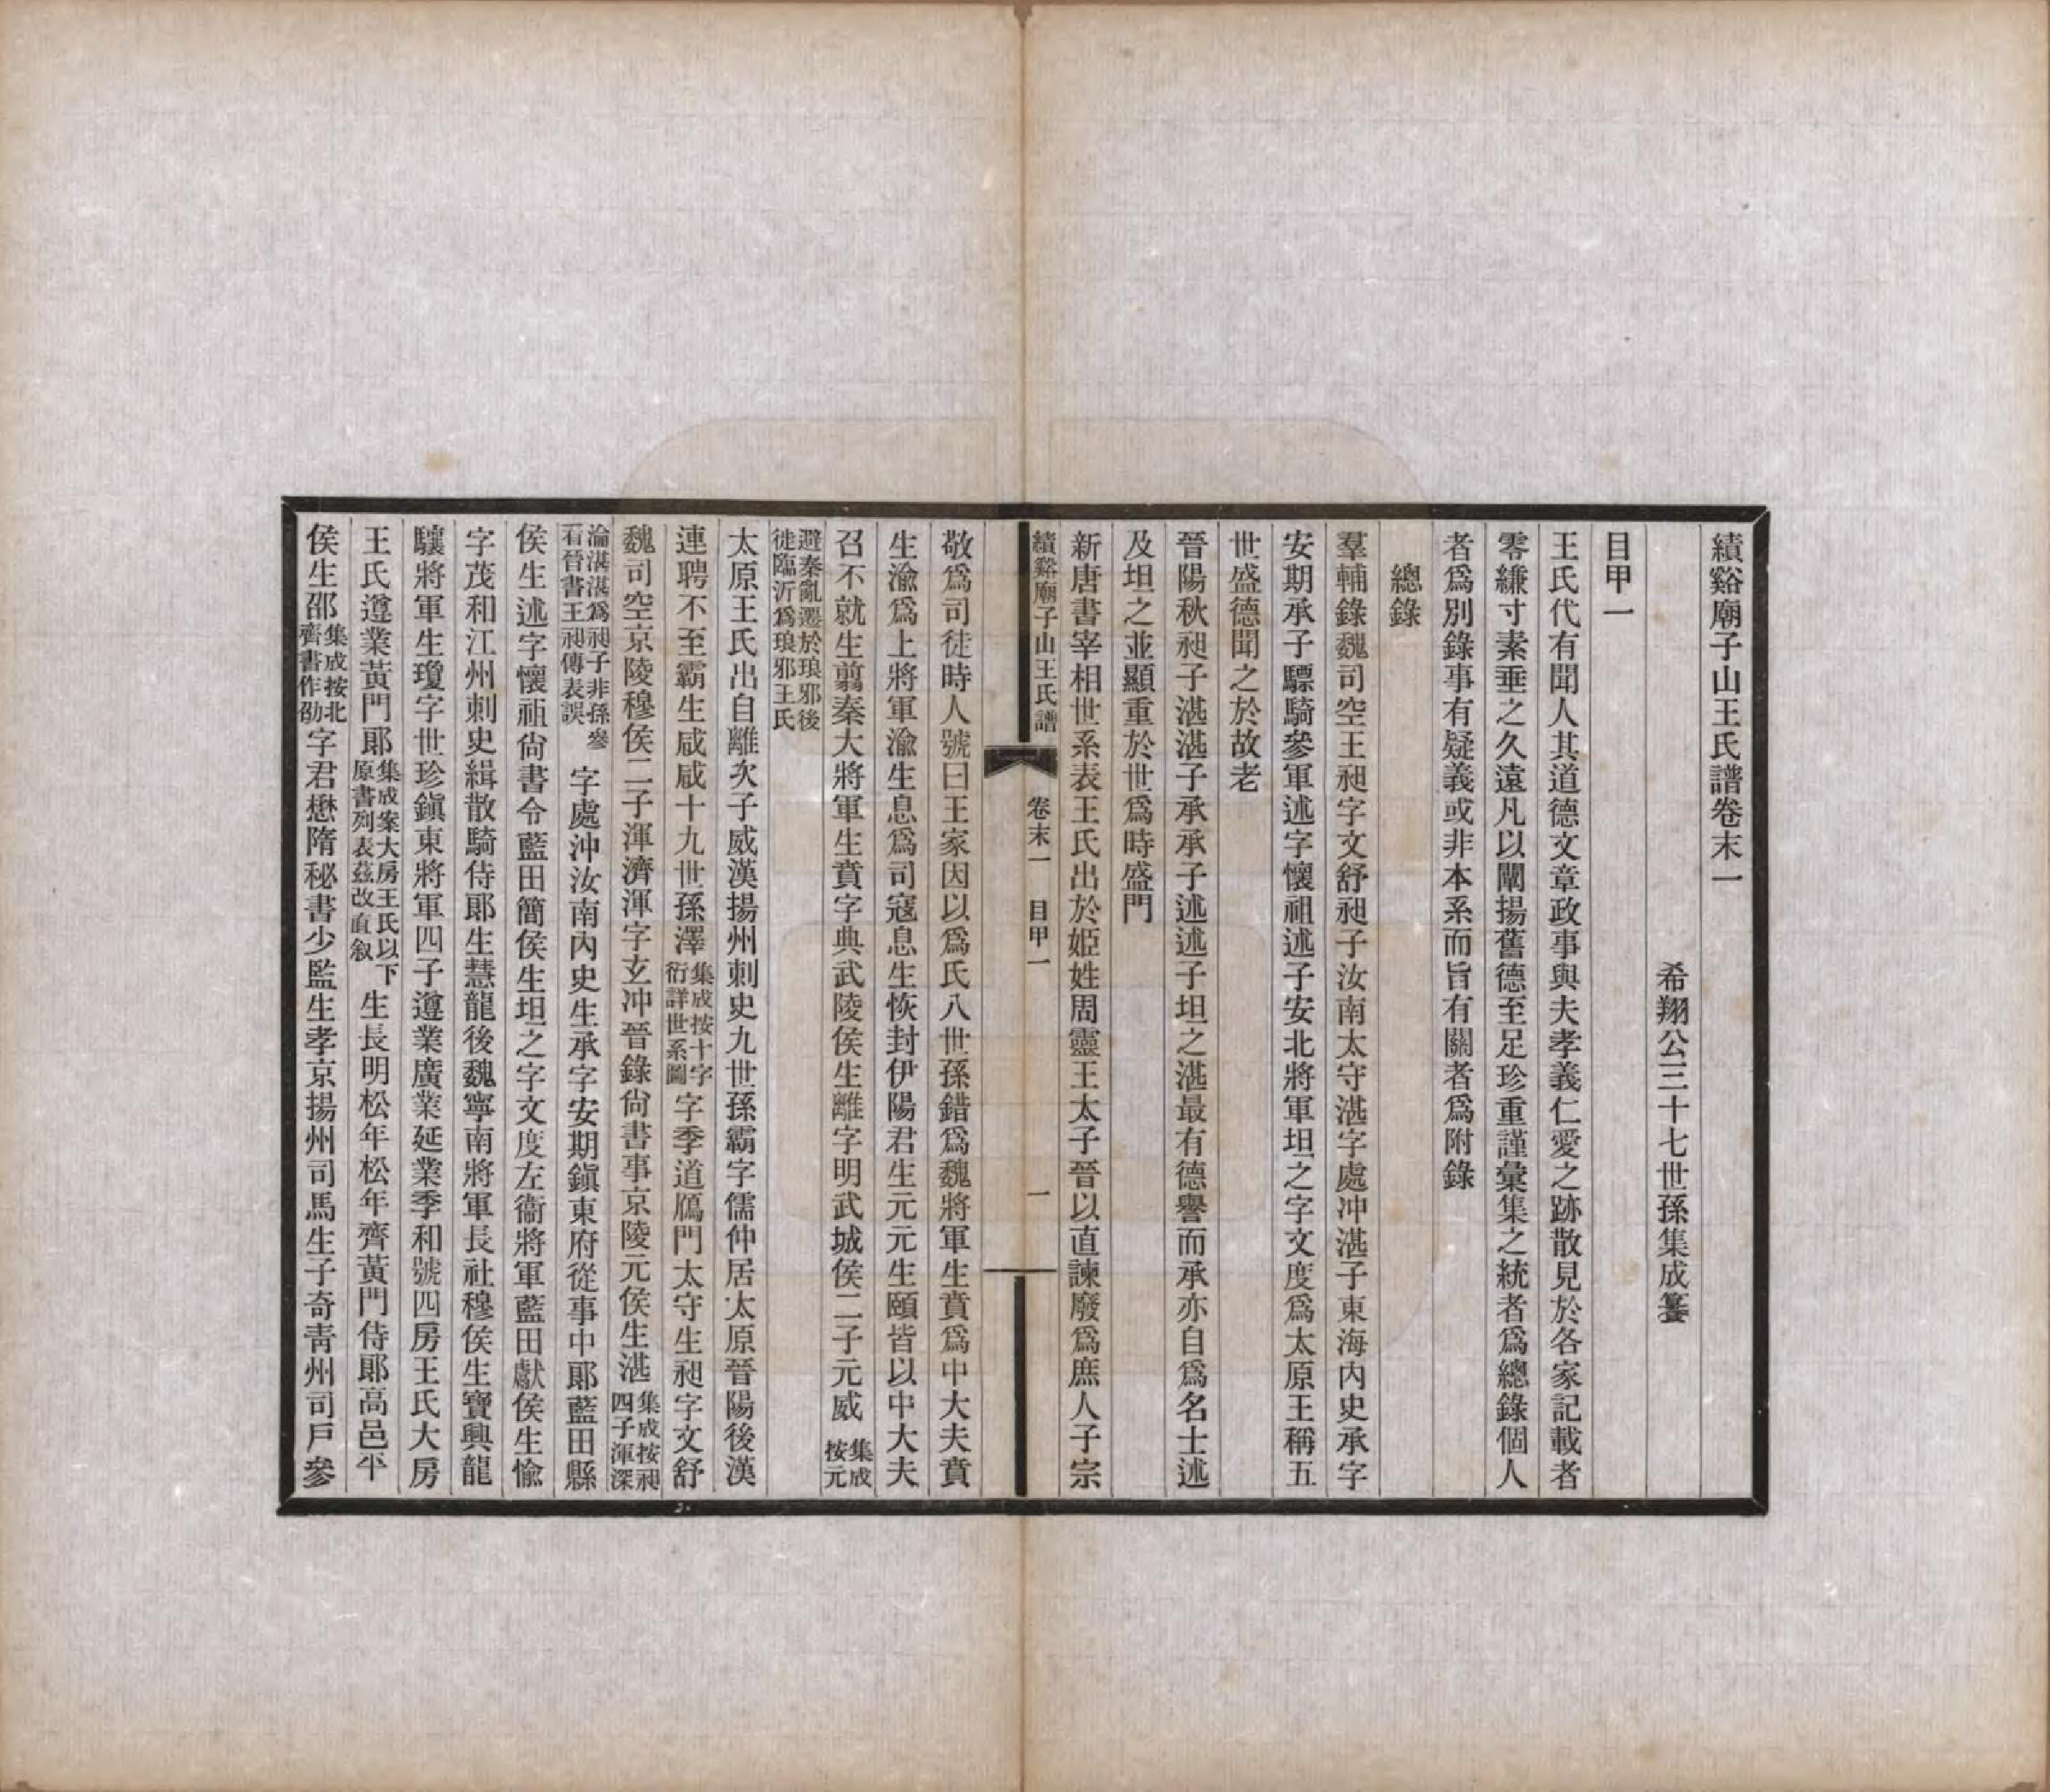 績谿廟子山王氏譜卷末一
希翔公三十七世孫集成纂
目甲一
王氏代有聞人其道德文章政事與夫孝義仁愛之跡散見於各家記載者
零縑寸素垂之久遠凡以闡揚舊德至足珍重謹彙集之統者爲總錄個人
者爲別錄事有疑義或非本系而旨有關者爲附錄
總錄
羣輔錄魏司空王昶字文舒昶子汝南太守湛字處沖湛子東海內史承字
安期承子驃騎參軍述字懷祖述子安北將軍坦之字文度爲太原王稱五
世盛德聞之於故老
晉陽秋昶子湛湛子承承子述述子坦之湛最有德譽而承亦自爲名士述
及坦之並顯重於世爲時盛門
新唐書宰相世系表王氏出於姬姓周靈王太子晉以直諫廢爲庶人子宗
績谿廟子山王氏譜 卷末一 目甲一 一
敬爲司徒時人號曰王家因以爲氏八世孫錯爲魏將軍生賁爲中大夫賁
生渝爲上將軍渝生息爲司寇息生恢封伊陽君生元元生頤皆以中大夫
召不就生翦秦大將軍生賁字典武陵侯生離字明武城侯二子元威 集成
按元
避秦亂遷於琅邪後
徙臨沂爲琅邪王氏
太原王氏出自離次子威漢揚州刺史九世孫霸字儒仲居太原晉陽後漢
連聘不至霸生咸咸十九世孫澤 集成按十字
衍詳世系圖 字季道鴈門太守生昶字文舒
魏司空京陵穆侯二子渾濟渾字玄沖晉錄尙書事京陵元侯生湛 集成按昶
四子渾深
淪湛湛爲昶子非孫參
看晉書王昶傳表誤 字處沖汝南內史生承字安期鎭東府從事中郞藍田縣
侯生述字懷祖尙書令藍田簡侯生坦之字文度左衞將軍藍田獻侯生愉
字茂和江州刺史緝散騎侍郞生慧龍後魏寧南將軍長社穆侯生寶興龍
驤將軍生瓊字世珍鎭東將軍四子遵業廣業延業季和號四房王氏大房
王氏遵業黃門郞 集成案大房王氏以下
原書列表茲改直叙 生長明松年松年齊黃門侍郞高邑平
侯生邵 集成按北
齊書作劭 字君懋隋秘書少監生孝京揚州司馬生子奇靑州司戶參